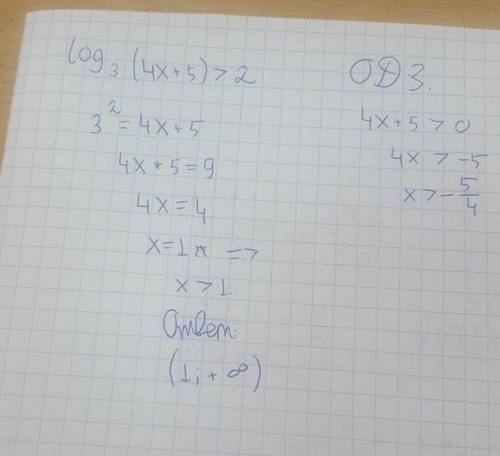 log₃(4x+5)>2
3²=4x+5
4x+5=9
4x=4
x=1 =>
x>1.
Ответ:
(1;+∞)
ОДЗ.
4x+5>0
4x>-5
x>-5/4